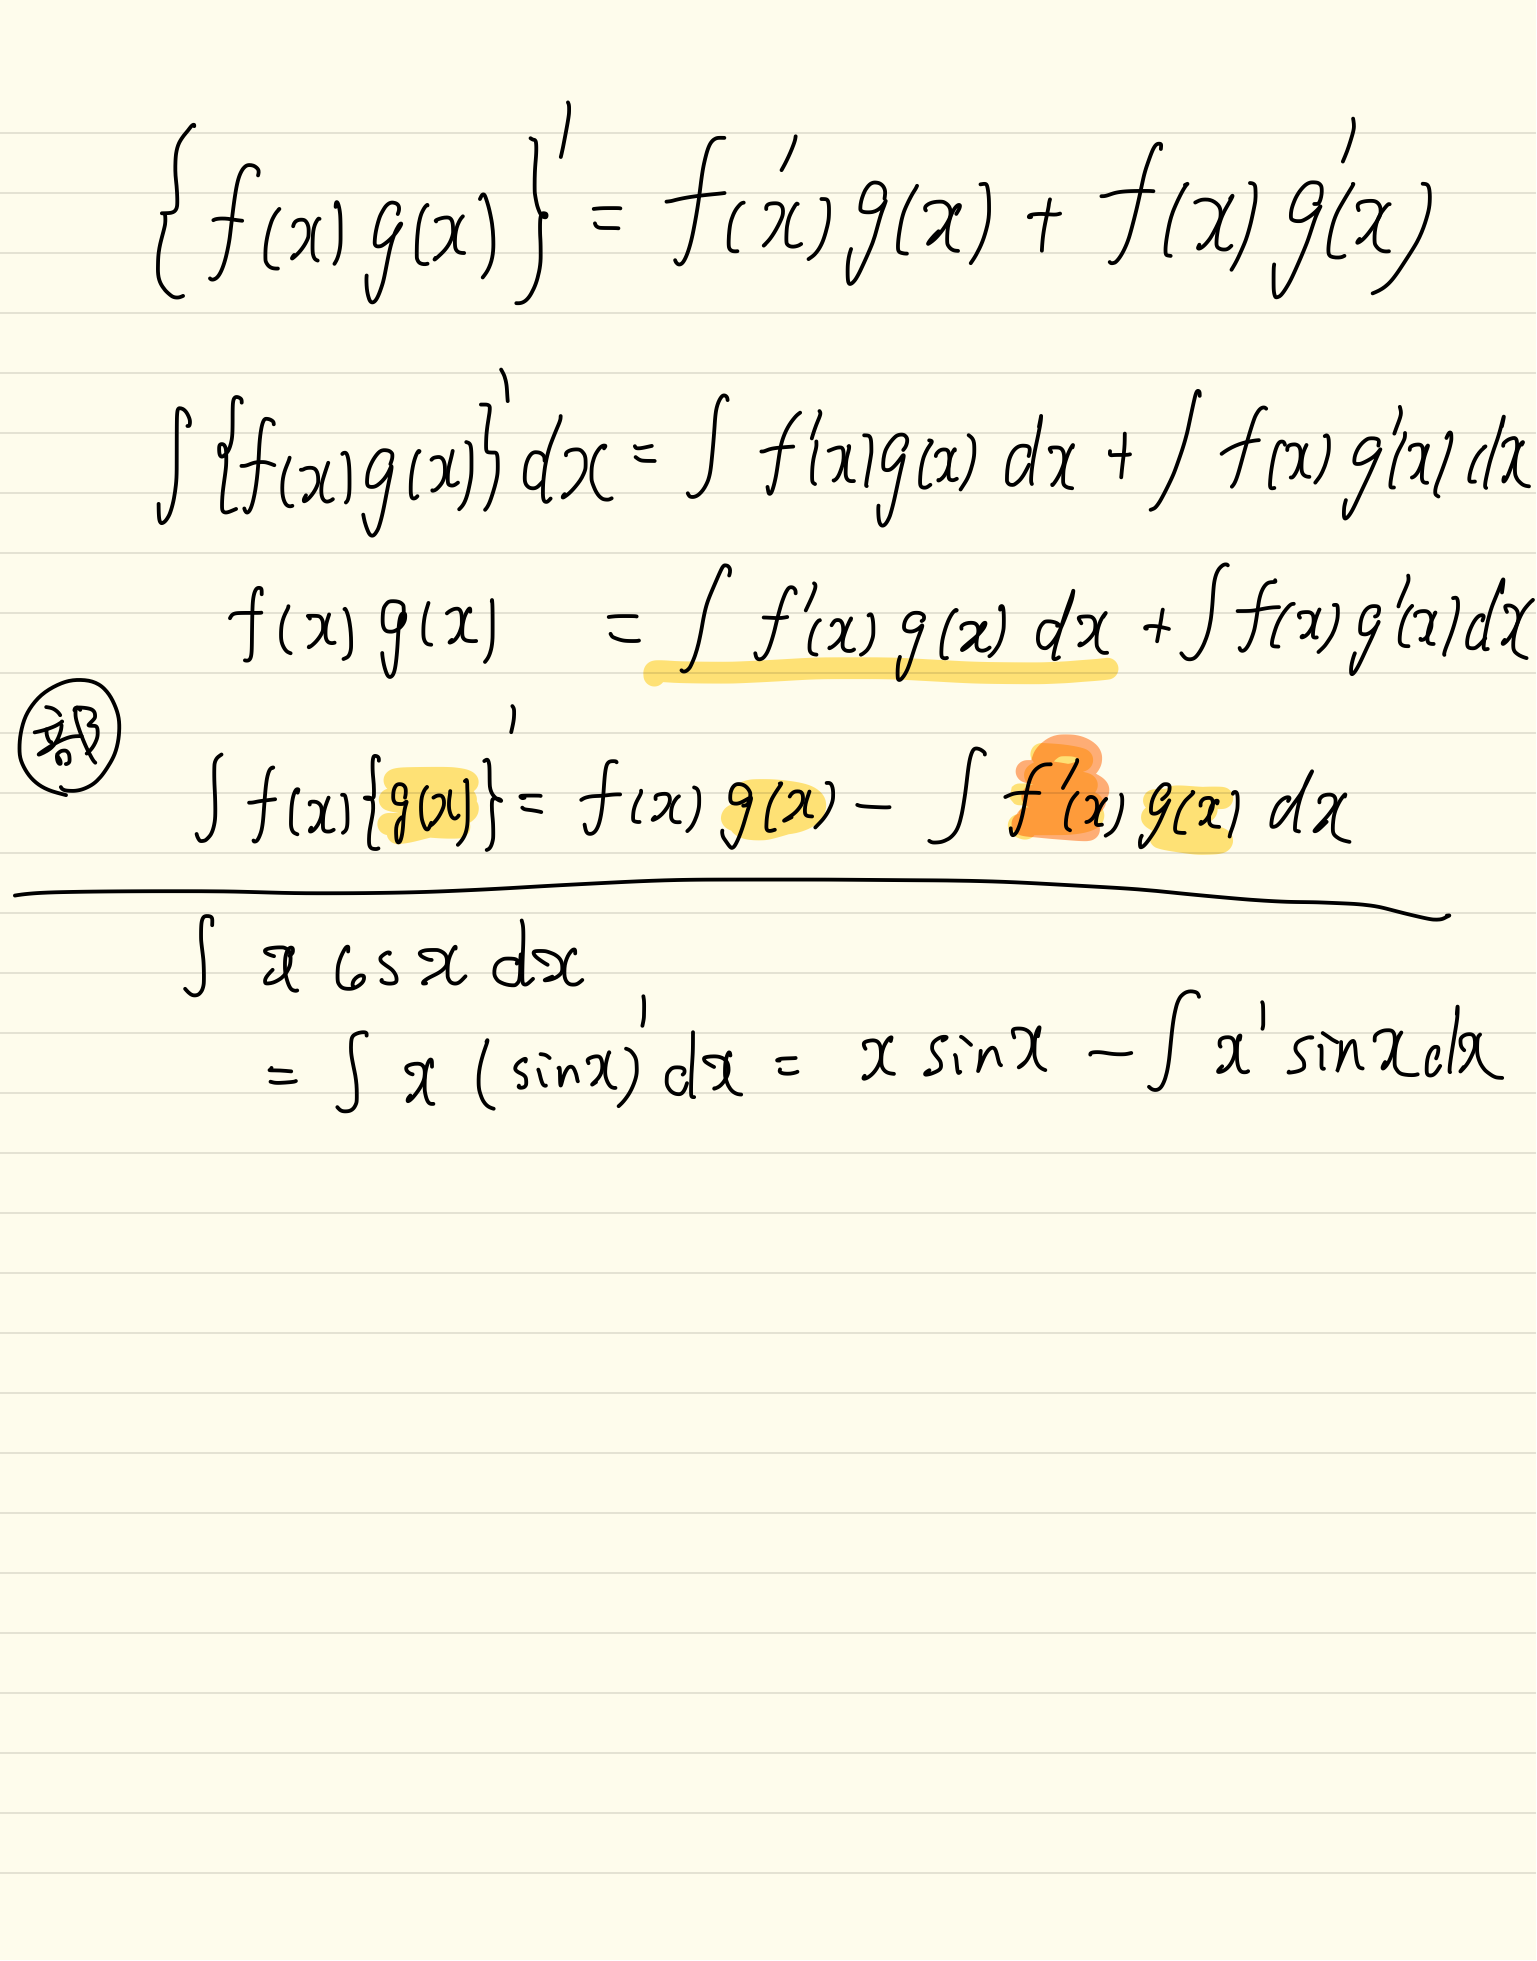 {f(x)g(x)}' = f'(x)g(x) + f(x)g'(x)
∫{f(x)g(x)}'dx = ∫f'(x)g(x)dx + ∫f(x)g'(x)dx
f(x)g(x) = ∫f'(x)g(x)dx + ∫f(x)g'(x)dx
部
∫f(x){g(x)}' = f(x)g(x) - ∫f'(x)g(x)dx
∫x cosx dx
= ∫x(sinx)'dx = x sinx - ∫x' sinx dx